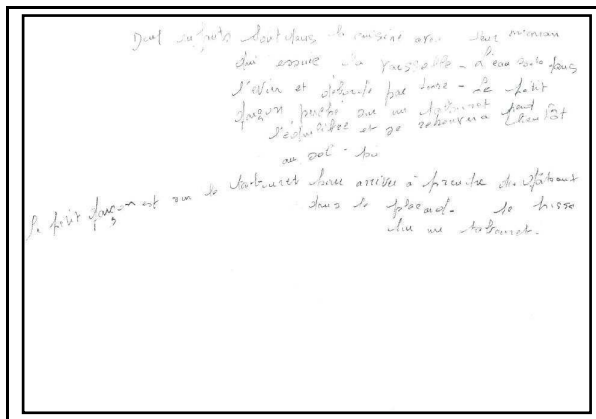 Deux enfants sont dans la cuisine avec leur maman
qui essuie la vaisselle - L'eau coule dans
l'évier et déborde par terre - Le petit
garçon perché sur un tabouret perd
l'équilibre et se retrouvera bientôt
au sol -
Le petit garçon est sur le tabouret pour arriver à prendre des gâteaux
dans le placard. se hisse
sur un tabouret.